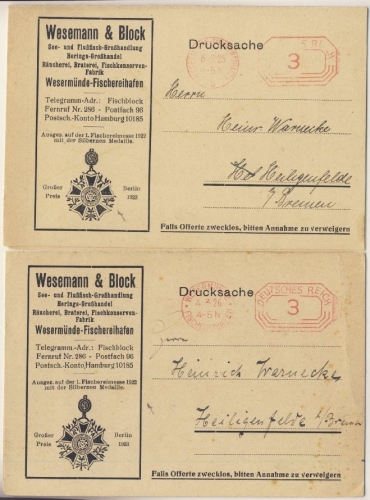 Wesemann & Block
See- und Flußfisch-Großhandlung
Herings-Großhandel
Räucherei, Braterei, Fischkonserven-
Fabrik
Wesermünde-Fischereihafen
Telegramm-Adr.: Fischblock
Fernruf Nr. 286 - Postfach 96
Postsch.-Konto Hamburg 10185
Ausgez. auf der 1. Fischereimesse 1922
mit der Silbernen Medaille.
Großer Berlin
Preis 1922
Drucksache
3
Herrn
Heinr. Warnecke
Hof Heiligenfelde
b/Bremen
Falls Offerte zwecklos, bitten Annahme zu verweigern
Wesemann & Block
See- und Flußfisch-Großhandlung
Herings-Großhandel
Räucherei, Braterei, Fischkonserven-
Fabrik
Wesermünde-Fischereihafen
Telegramm-Adr.: Fischblock
Fernruf Nr. 286 - Postfach 96
Postsch.-Konto Hamburg 10185
Ausgez. auf der 1. Fischereimesse 1922
mit der Silbernen Medaille.
Großer Berlin
Preis
Drucksache
DEUTSCHES REICH
3
Herrn
Heinrich Warnecke
Heiligenfelde
Falls Offerte zwecklos, bitten Annahme zu verweigern